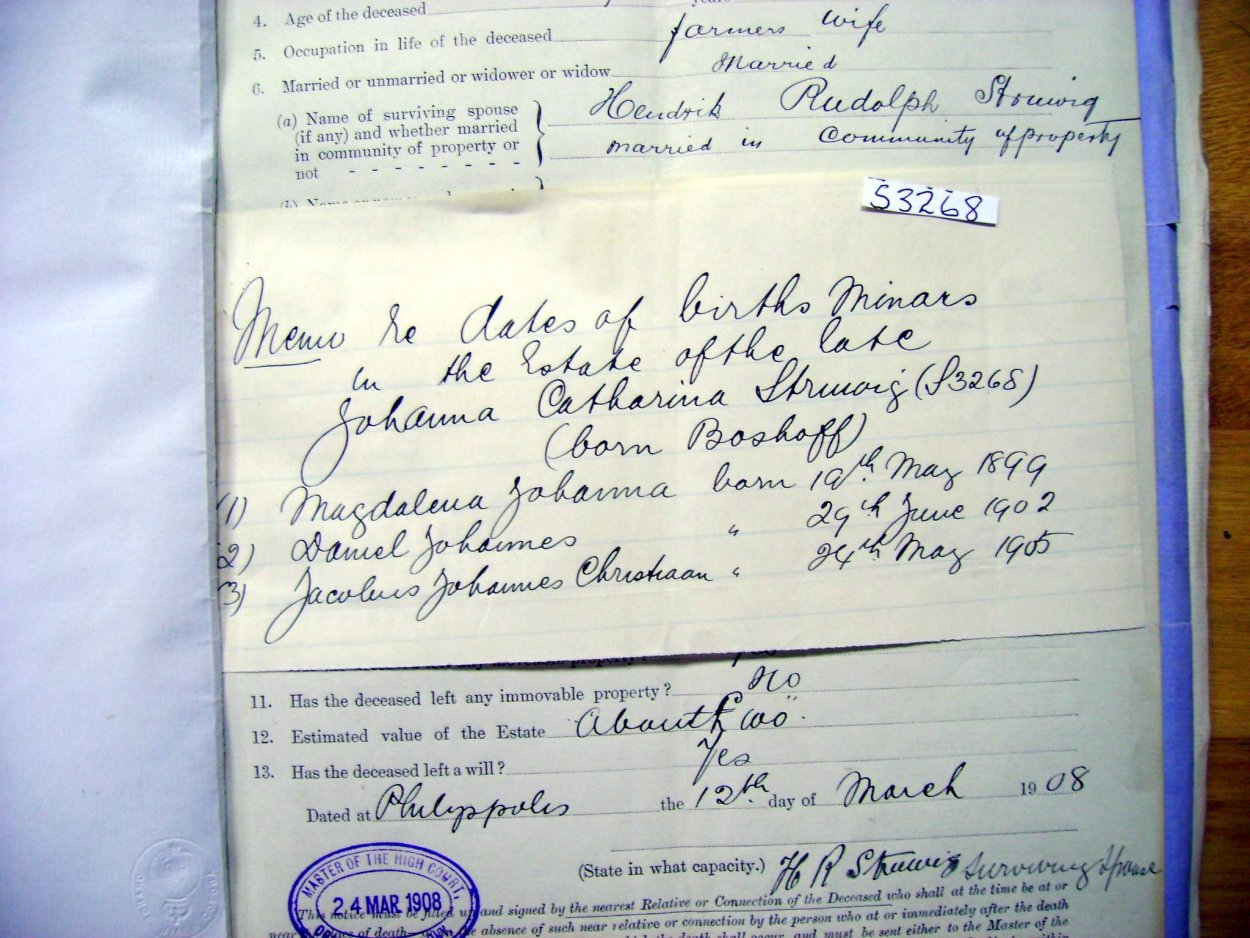 4. Age of the deceased
5. Occupation in life of the deceased farmers wife
6. Married or unmarried or widower or widow Married
(a) Name of surviving spouse
(if any) and whether married
in community of property or
not - - - - - - -
Hendrik Rudolph Struwig
married in Community of property
S3268
Memo re dates of births Minors
in the Estate of the late
Johanna Catharina Struwig (S3268)
(born Boshoff)
(1) Magdalena Johanna born 19th May 1899
(2) Daniel Johannes " 29th June 1902
(3) Jacobus Johannes Christiaan " 24th May 1905
11. Has the deceased left any immovable property? No
12. Estimated value of the Estate About £100
13. Has the deceased left a will? Yes
Dated at Philippolis the 12th day of March 1908
(State in what capacity.) H R Struwig Surviving Spouse
MASTER OF THE HIGH COURT,
24 MAR 1908
This notice must be filled up and signed by the nearest Relative or Connection of the Deceased who shall at the time be at or
near the place of death the absence of such near relative or connection by the person who at or immediately after the death
must be sent either to the Master of the